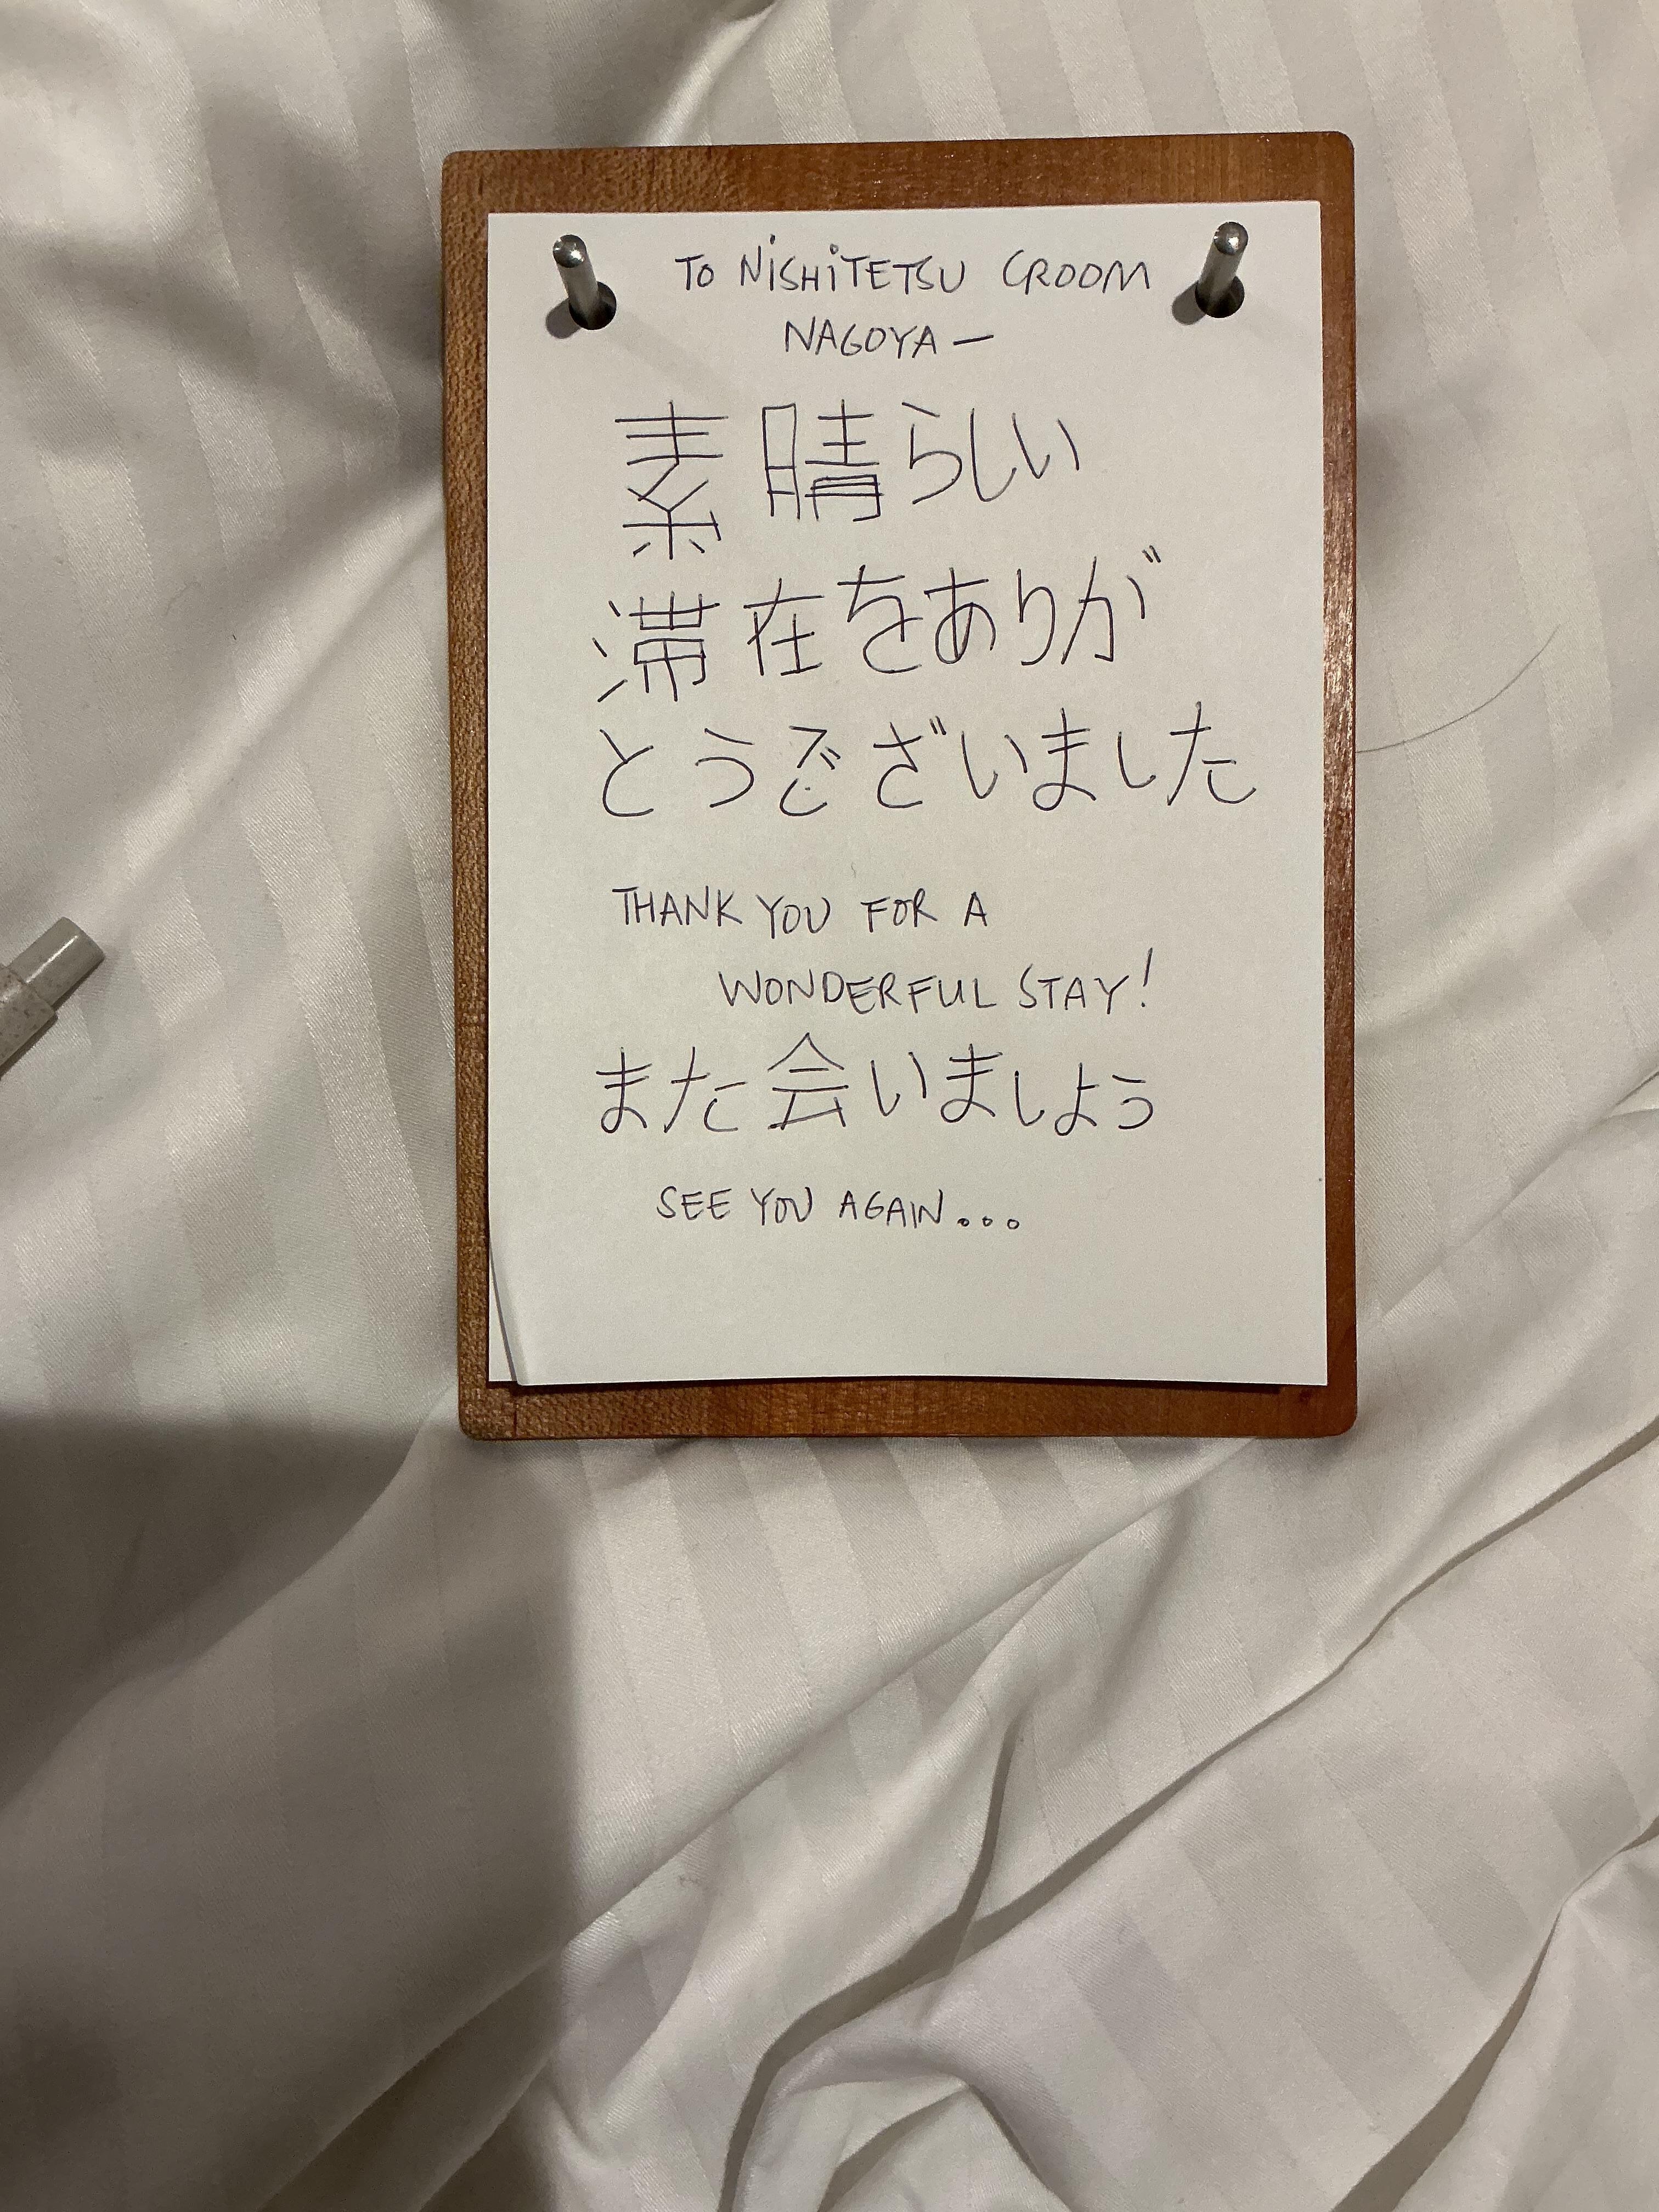 TO NISHITETSU CROOM
NAGOYA —
素晴らしい
滞在をありが
とうございました
THANK YOU FOR A
WONDERFUL STAY!
また会いましょう
SEE YOU AGAIN...